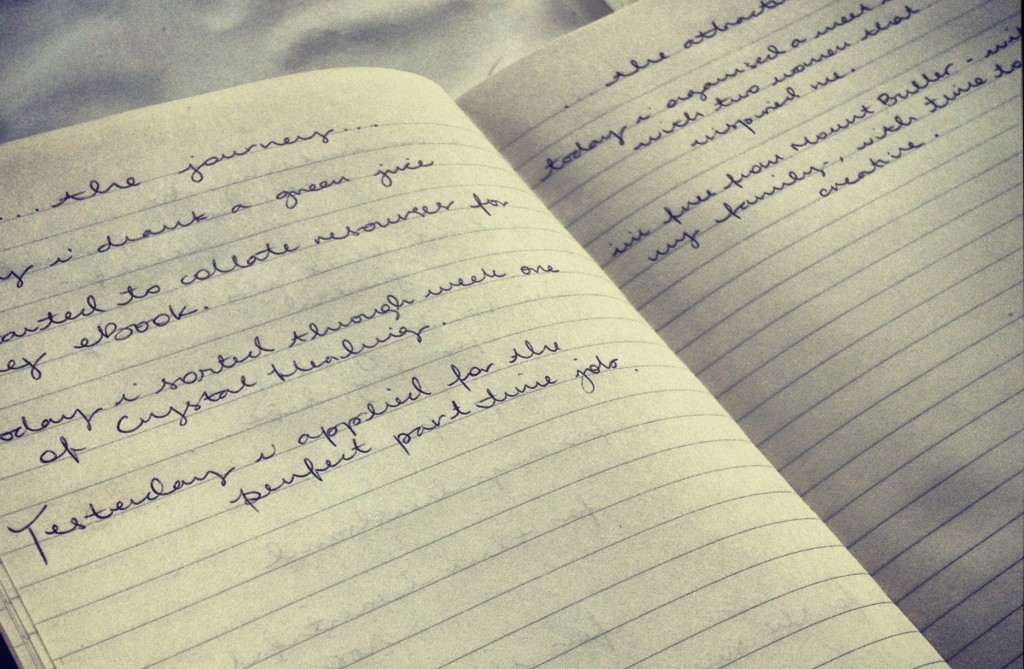 ... the journey ...
i drank a green juice
to collate resources for
ebook.
i sorted through week one
of Crystal Healing.
Yesterday i applied for the
perfect part time job.
... the
today i organised a meet
with two women that
inspired me.
free from Mount Buller -
my family, with time to
creative.